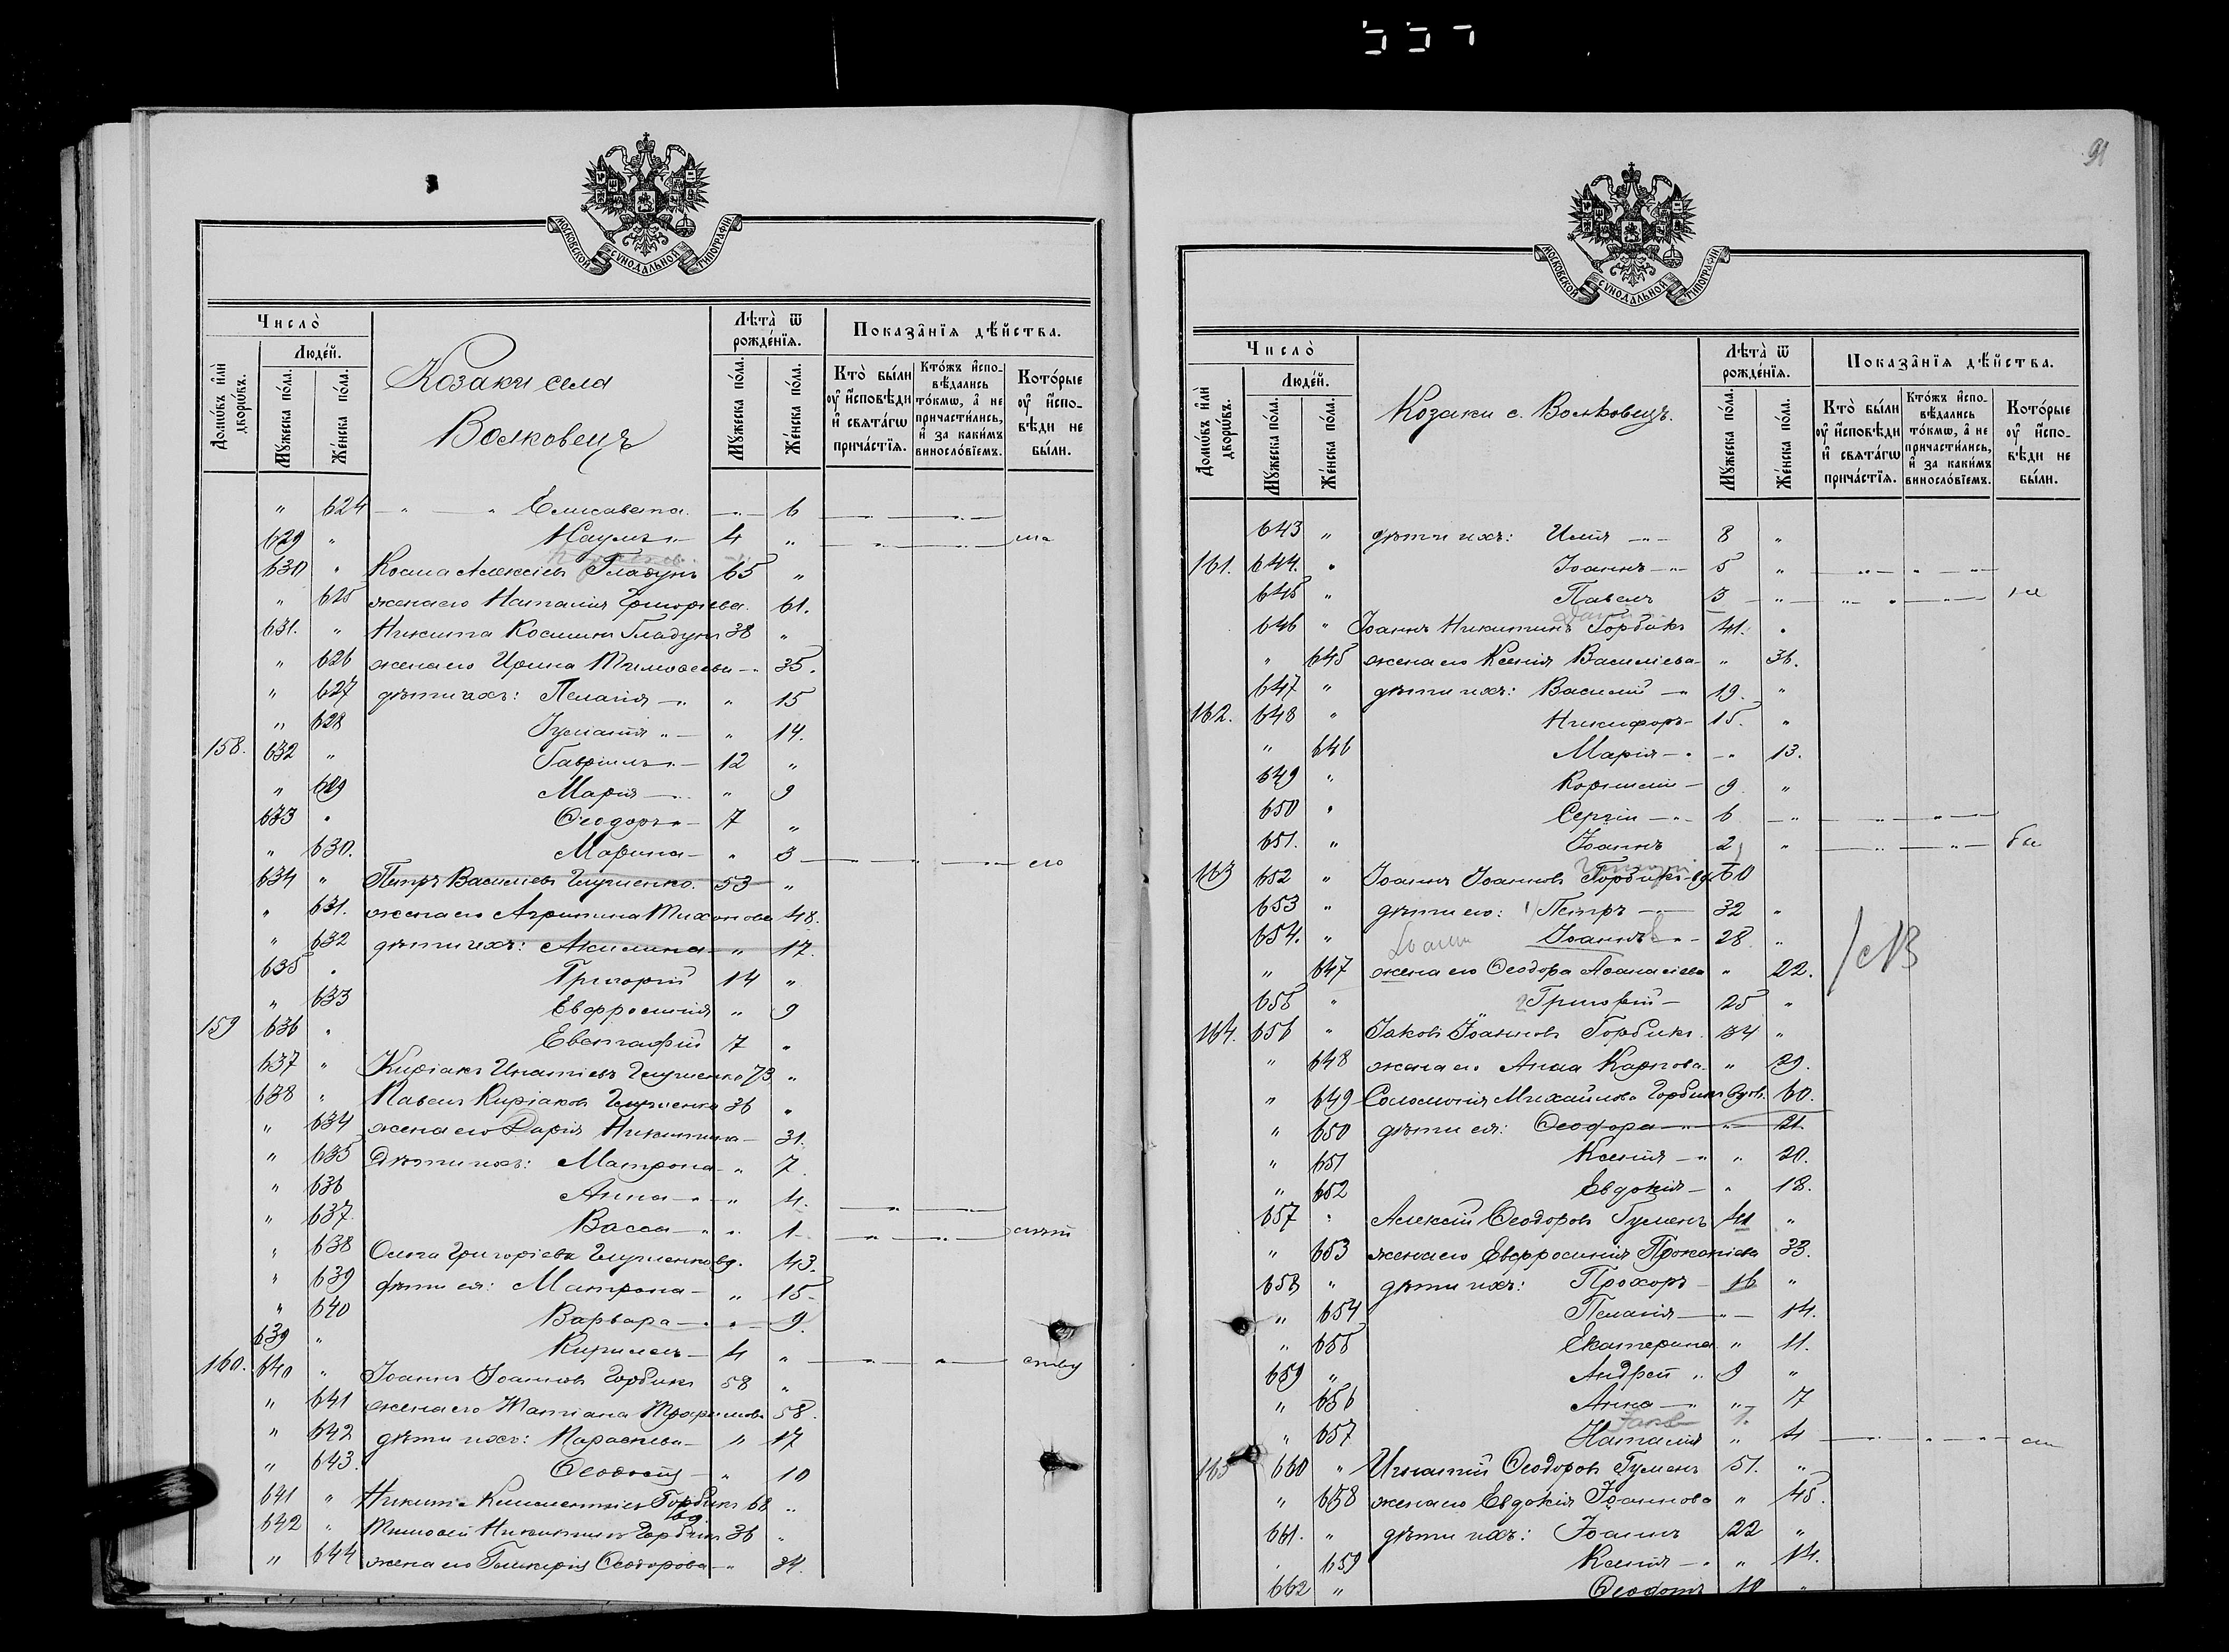 91
МОСКОВСКОЙ СѴНОДАЛЬНОЙ ТИПОГРАФІИ
Число̀
Людéй.
Домѡ́въ и҆лѝ дворѡ́въ.
Мꙋ́жеска по́ла.
Же́нска по́ла.
Козаки села
Волковецъ
Лѣ́та ѿ рожде́нїѧ.
Мꙋ́жеска по́ла.
Же́нска по́ла.
Показа̑нїѧ дѣ́йства.
Кто̀ бы́ли ᲂу҆ и҆сповѣ́ди и҆ свѧта́гѡ прича́стїѧ.
Кто́жъ и҆сповѣ́дались то́кмѡ, а҆ не причасти́лись, и҆ за каки́мъ винослóвїемъ.
Кото́рые ᲂу҆ и҆сповѣ́ди не бы́ли.
" 624 " Елисавета 6
629 " Наумъ 4 "
630 " Косма Алексіевъ Гладунъ 65 "
" 625 жена его Наталія Григоріева 61.
631. " Никита Косминъ Гладунъ 38 "
" 626 жена его Ирина Тимофеева 35.
" 627 дѣти ихъ: Пелагія " 15
" 628 Гуліанія " 14.
158. 632 " Гавріилъ 12 "
" 629 Марія " 9
633 " Ѳеодоръ 7 "
" 630. Марина " 3 его
634 " Петръ Василіевъ Глушенко. 53 "
" 631. жена его Агрипина Тихонова 48.
" 632 дѣти ихъ: Акилина " 17.
635 " Григорій 14 "
" 633 Евфросинія " 9
159 636 " Евстафій 7 "
637 " Киріакъ Игнатіевъ Глушенко 73 "
638 " Павелъ Киріаковъ Глушенко 36 "
" 634 жена его Дарія Никитина 31.
" 635 дѣти ихъ: Матрона " 7
" 636 Анна " 4.
" 637 Васса " 1
" 638 Ольга Григоріева Глушенко вд. 43.
" 639 дѣти ея: Матрона " 15
" 640 Варвара " 9.
639 " Кириллъ 4 "
160. 640 " Іоаннъ Іоанновъ Горбикъ 58 "
" 641 жена его Татіана Трофимова 58.
" 642 дѣти ихъ: Параскева " 17
" 643. Ѳеодосія " 10
641 " Никита Климентіевъ Горбикъ 68 "
642 " Тимофей Никитинъ Горбикъ 36 "
" 644 жена его Гликерія Ѳеодорова " 34.
МОСКОВСКОЙ СѴНОДАЛЬНОЙ ТИПОГРАФІИ
Число̀
Людéй.
Домѡ́въ и҆лѝ дворѡ́въ.
Мꙋ́жеска по́ла.
Же́нска по́ла.
Козаки с. Волковецъ.
Лѣ́та ѿ рожде́нїѧ.
Мꙋ́жеска по́ла.
Же́нска по́ла.
Показа̑нїѧ дѣ́йства.
Кто̀ бы́ли ᲂу҆ и҆сповѣ́ди и҆ свѧта́гѡ прича́стїѧ.
Кто́жъ и҆сповѣ́дались то́кмѡ, а҆ не причасти́лись, и҆ за каки́мъ винослóвїемъ.
Кото́рые ᲂу҆ и҆сповѣ́ди не бы́ли.
643 " дѣти ихъ: Илія 8 "
161. 644. " Іоаннъ 5 "
645 " Павелъ 3 "
646 " Іоаннъ Никитинъ Горбикъ 41. "
" 645 жена его Ксенія Василіева " 36.
647 " дѣти ихъ: Василій 19. "
162. 648 " Никифоръ 15. "
" 646 Марія 13.
649 " Корнилій 9 "
650 " Сергій 6
651. " Іоаннъ 2 "
163 652 " Іоаннъ Іоанновъ Горбикъ вд. 60
653 " дѣти его: 1 Петръ 32 "
654. " Іоаннъ 28 "
" 647 жена его Ѳеодора Аѳанасіева " 22.
655 " 2 Григорій 25 "
164. 656 " Іаковъ Іоанновъ Горбикъ 34 "
" 648 жена его Анна Карпова " 29.
" 649 Соломонія Михайлова Горбикъ вдов. 60.
" 650 дѣти ея: Ѳеодора " 21.
" 651 Ксенія " 20.
" 652 Евдокія " 18.
657 " Алексій Ѳеодоровъ Гуменъ 41 "
" 653 жена его Евфросинія Прокопіева 33.
658 " дѣти ихъ: Прохоръ 16 "
" 654 Пелагія 14.
" 655 Екатерина " 11.
659 " Андрей 9 "
" 656 Анна " 7
" 657 Наталія " 4
165 660 " Игнатій Ѳеодоровъ Гуменъ 51. "
" 658 жена его Евдокія Іоаннова " 45.
661. " дѣти ихъ: Іоаннъ 22 "
" 659 Ксенія " 14.
662 " Ѳеодотъ 10 "